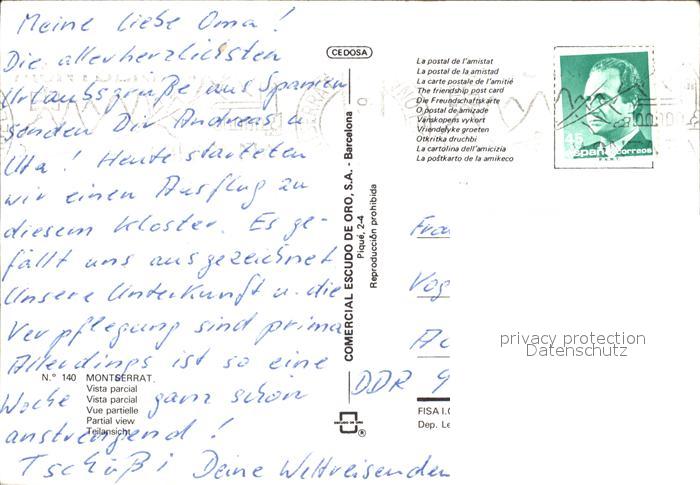 Meine liebe Oma!
Die allerherzlichsten
Urlaubsgrüße aus Spanien
senden Dir Andreas u.
Uta! Heute starteten
wir einen Ausflug zu
diesem Kloster. Es ge-
fällt uns ausgezeichnet
Unsere Unterkunft u. die
Verpflegung sind prima
Allerdings ist so eine
Woche ganz schön
anstrengend!
Tschüß! Deine Weltreisenden
N.° 140 MONTSERRAT.
Vista parcial
Vista parcial
Vue partielle
Partial view
Teilansicht
CEDOSA
COMERCIAL ESCUDO DE ORO, S.A. - Barcelona
Piqué, 2-4
Reproducción prohibida
ESCUDO DE ORO
®
La postal de l'amistat
La postal de la amistad
La carte postale de l'amitié
The friendship post card
Die Freundschaftskarte
O postal de amizade
Vanskopens vykort
Vriendelyke groeten
Otkritka druchbi
La cartolina dell'amicizia
La poŝtkarto de la amikeco
45
españa correos
F.N.M.T.
Frau
Vog
DDR 9
FISA I.G
Dep. Le
privacy protection
Datenschutz